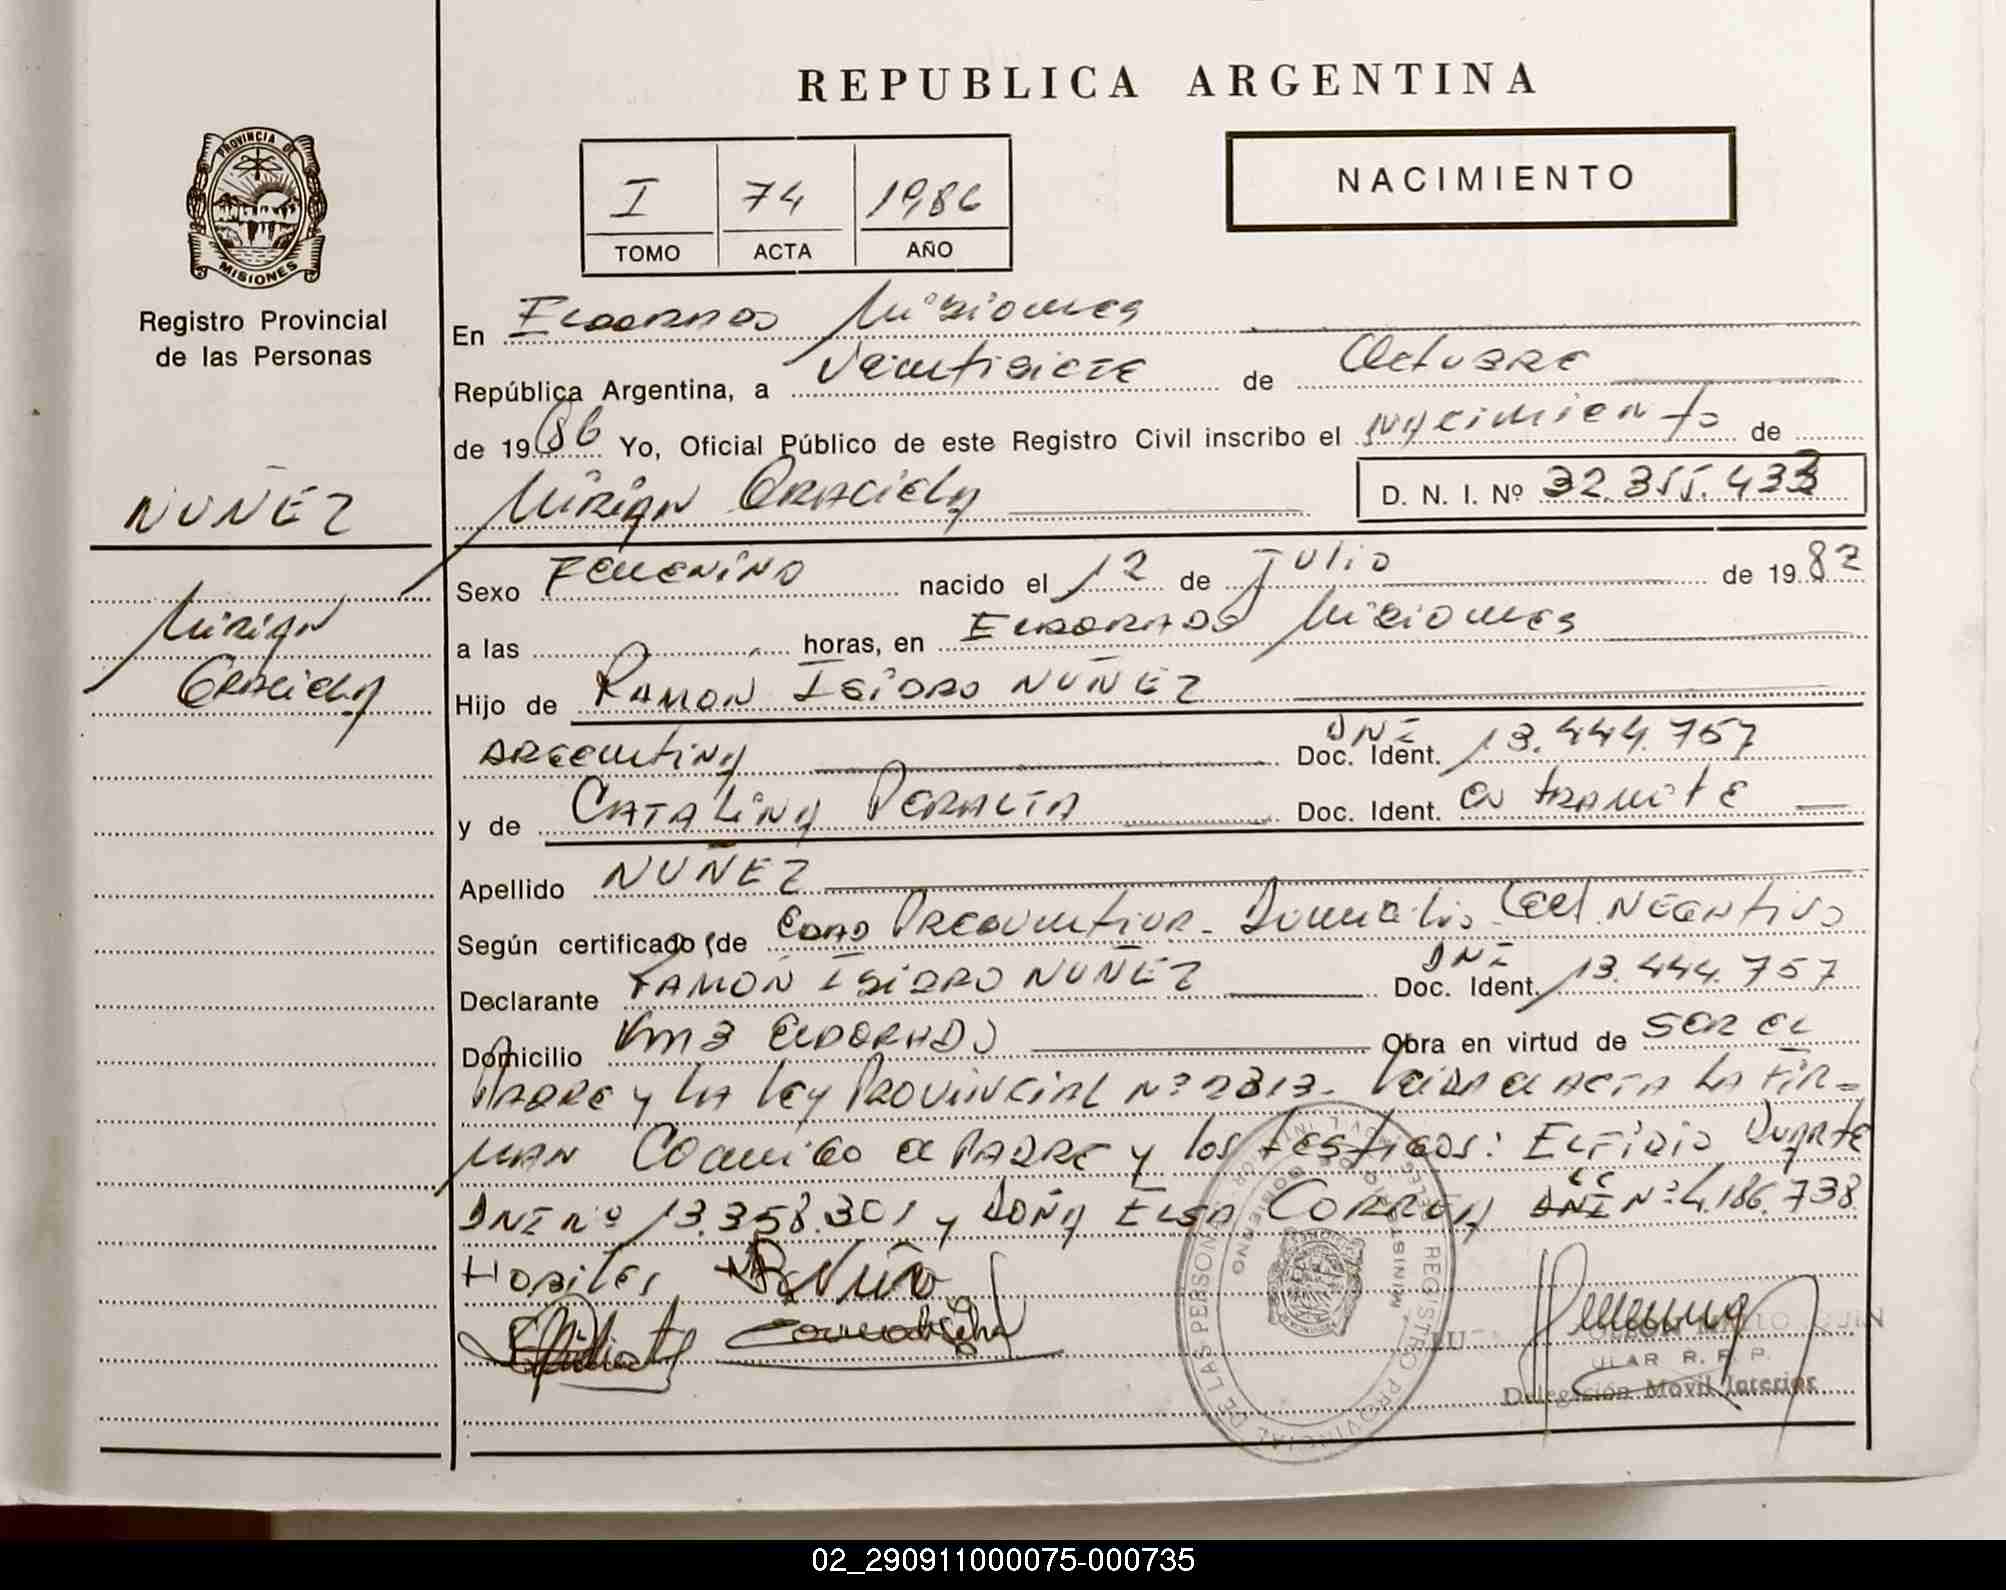 REPUBLICA ARGENTINA
PROVINCIA DE
MISIONES
Registro Provincial
de las Personas
I 74 1986
TOMO ACTA AÑO
NACIMIENTO
En Eldorado Misiones
República Argentina, a Veintisiete de Octubre
de 1986 Yo, Oficial Público de este Registro Civil inscribo el nacimiento de
NUÑEZ
Mirian Graciela
Mirian Graciela D. N. I. Nº 32.355.433
Sexo Femenino nacido el 12 de Julio de 1982
a las horas, en Eldorado Misiones
Hijo de Ramon Isidro NUÑEZ
Argentina DNI Doc. Ident. 13.444.757
y de Catalina Peralta Doc. Ident. en tramite
Apellido NUÑEZ
Según certificado de Edad Presuntiva - Cert Negativo
Declarante Ramon Isidro NUÑEZ DNI Doc. Ident. 13.444.757
Domicilio Km 3 Eldorado Obra en virtud de ser el
Padre y la Ley Provincial Nº 2313. Leida el acta la fir=
man conmigo el Padre y los testigos: Elfidio Duarte
DNI nº 13.358.301 y doña Elsa Correa DNI LC Nº 4.186.738
Habiles
REGISTRO PROVINCIAL DE LAS PERSONAS
MINISTERIO DE GOBIERNO
ULAR R. P. P.
Delegación Movil Interior
02_290911000075-000735